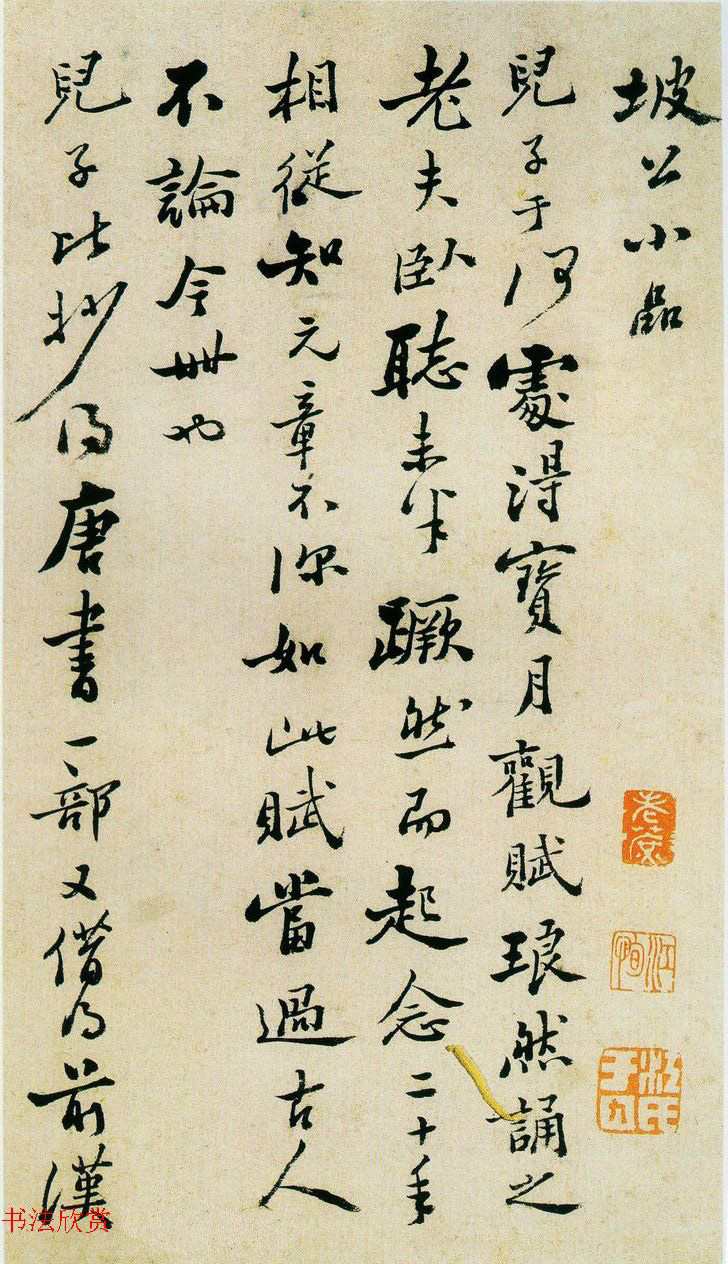 坡公小品
兒子于何處得寶月觀賦琅然誦之
老夫臥聽未半蹶然而起念二十年
相從知元章不深如此賦當過古人
不論今世也
兒子比抄得唐書一部又借得前漢
书法欣赏